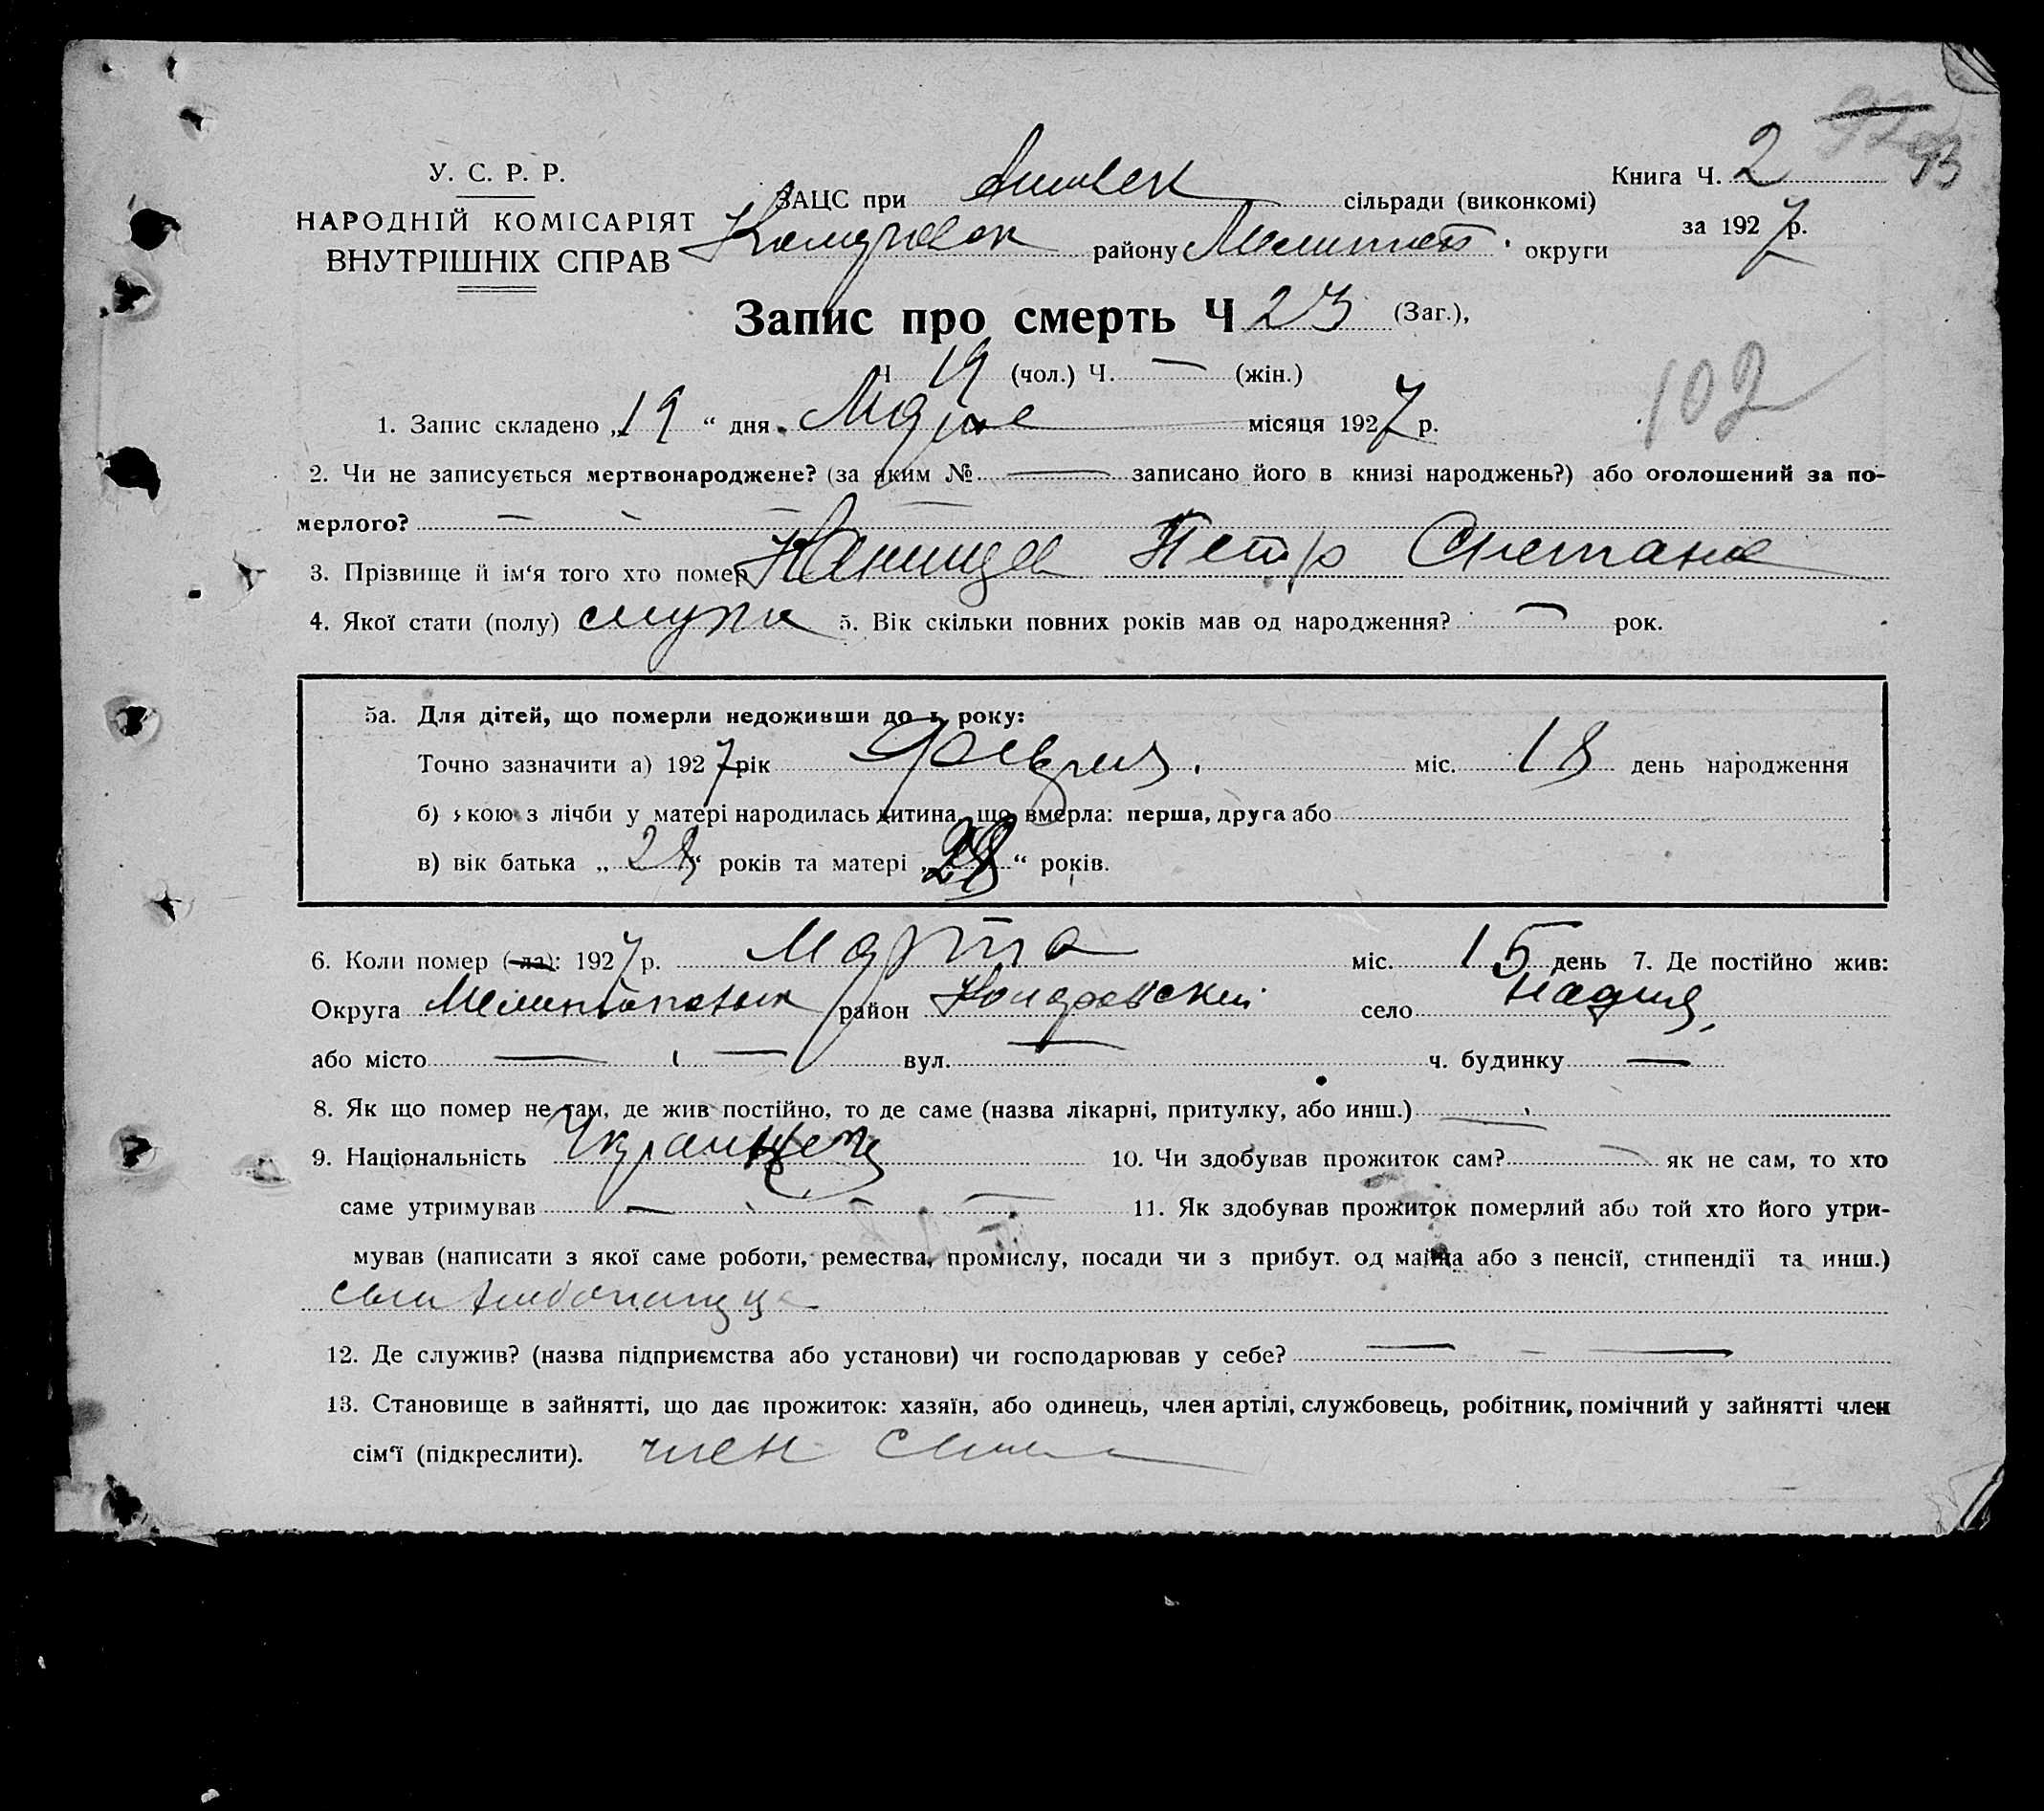 У. С. Р. Р.
НАРОДНІЙ КОМІСАРІЯТ
ВНУТРІШНІХ СПРАВ
ЗАЦС при сільради (виконкомі)
району Мелитоп. округи
Книга Ч. 2
93
за 1927 р.
Запис про смерть Ч 23 (Заг.),
Ч 19 (чол.) Ч. — (жін.)
102
1. Запис складено „19“ дня Марта місяця 1927 р.
2. Чи не записується мертвонароджене? (за яким № — записано його в книзі народжень?) або оголошений за по-
мерлого? — — — —
3. Прізвище й ім‘я того хто помер Петр
4. Якої стати (полу) мужк 5. Вік скільки повних років мав од народження? — рок.
5а. Для дітей, що померли недоживши до 1 року:
Точно зазначити а) 1927 рік февраля міс. 18 день народження
б) якою з лічби у матері народилась дитина, що вмерла: перша, друга або
в) вік батька „28“ років та матері „28“ років.
6. Коли помер (-ла): 1927 р. Марта міс. 15 день 7. Де постійно жив:
Округа район село
або місто — — вул. — ч. будинку —
8. Як що помер не там, де жив постійно, то де саме (назва лікарні, притулку, або инш.) —
9. Національність 10. Чи здобував прожиток сам? — як не сам, то хто
саме утримував — — — 11. Як здобував прожиток померлий або той хто його утри-
мував (написати з якої саме роботи, ремества, промислу, посади чи з прибут. од майна або з пенсії, стипендії та инш.)
сын
12. Де служив? (назва підприємства або установи) чи господарював у себе? — — —
13. Становище в зайнятті, що дає прожиток: хазяїн, або одинець, член артілі, службовець, робітник, помічний у зайнятті член
сім‘ї (підкреслити). член семи